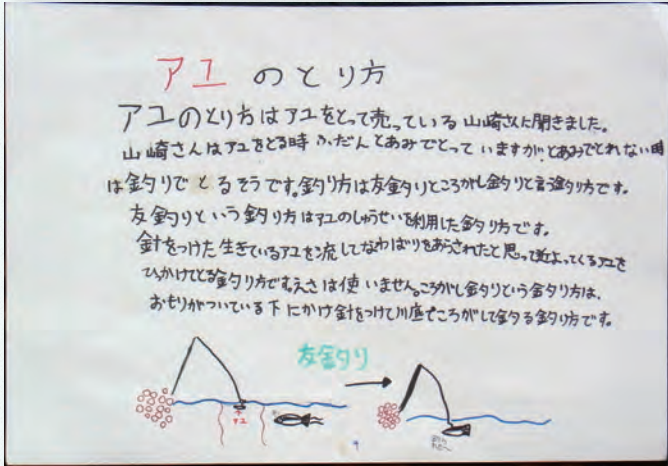 アユのとり方
アユのとり方はアユをとって売っている山崎さんに聞きました。
山崎さんはアユをとる時ふだんとあみでとっていますが、とあみでとれない時
は釣りでとるそうです。釣り方は友釣りところがし釣りと言う釣り方です。
友釣りという釣り方はアユのしゅうせいを利用した釣り方です。
針をつけた生きているアユを流してなわばりをあらされたと思って近よってくるアユを
ひっかけてとる釣り方です。えさは使いません。ころがし釣りという釣り方は、
おもりがついている下にかけ針をつけて川底でころがして釣る釣り方です。
友釣り
アユ